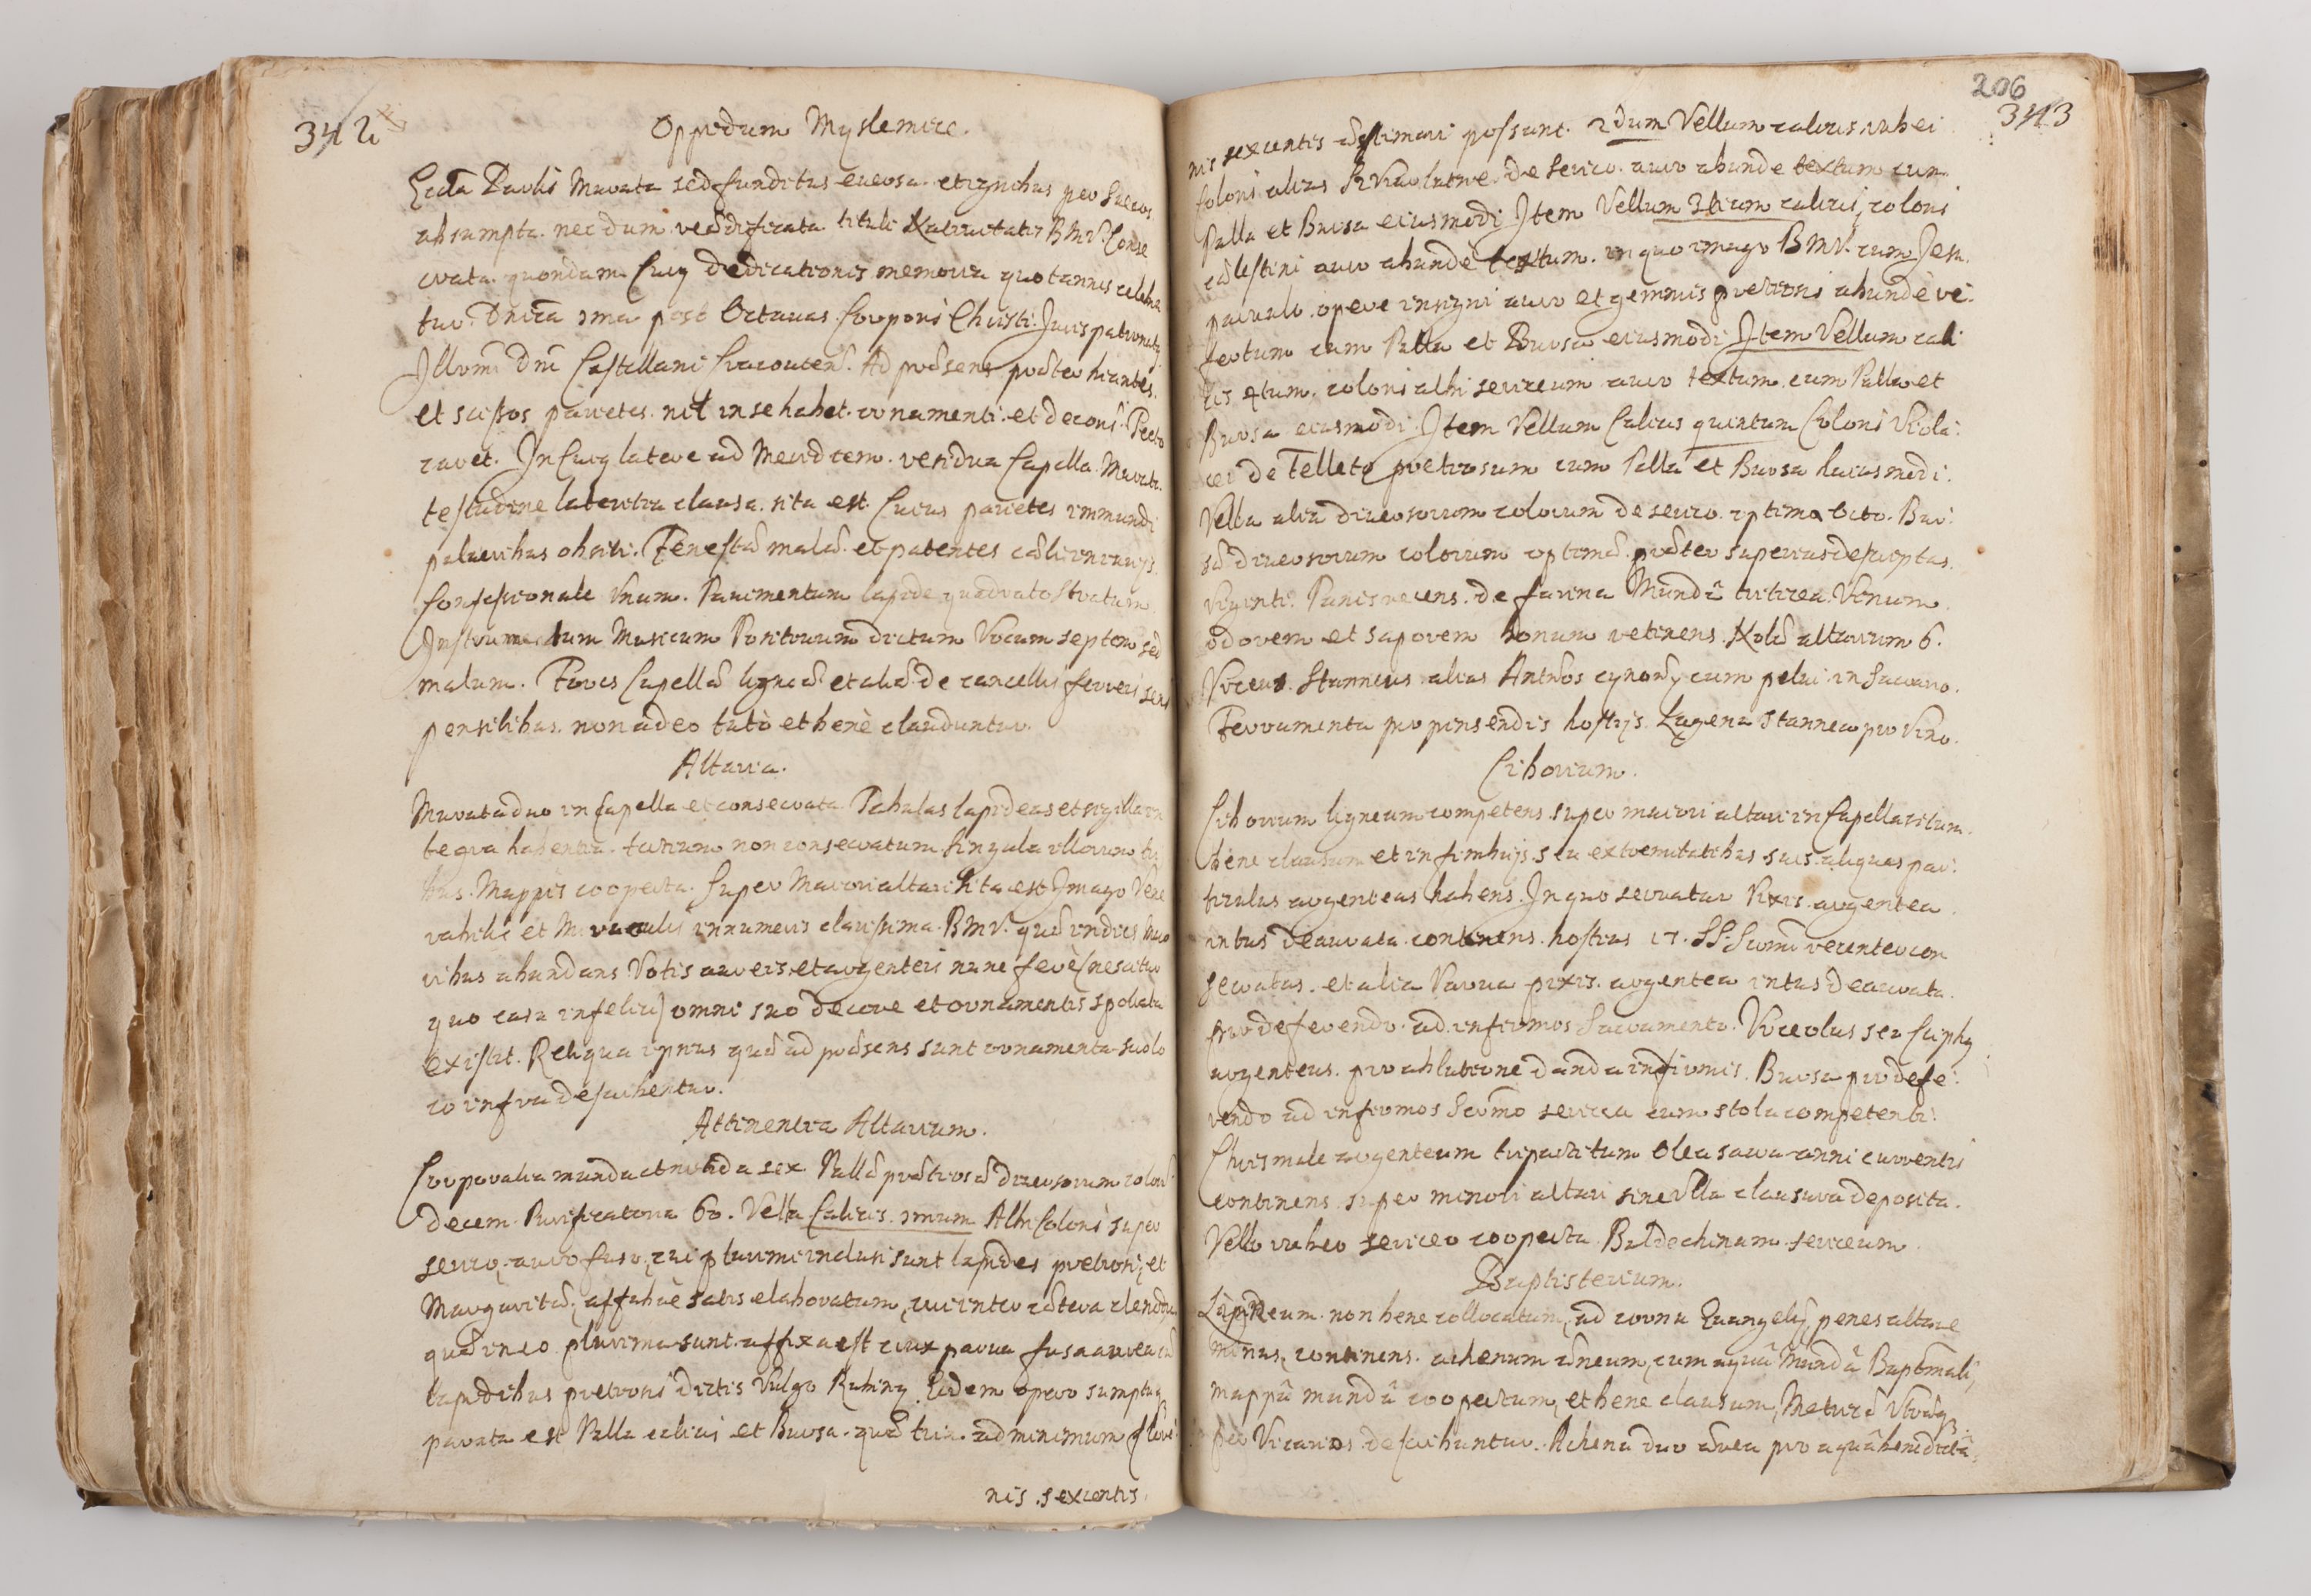 342
Oppidum Myslemice.
Eccla Paulis Murata sed funditus eversa et ignibus per Suecos
absumpta. nec dum reædificata tituli Nativitatis BMV. Conse
crata quondam Cuiq Dedicationis memoria quotannis celebra
tur. Dnica 1ma post Octavas Corporis Christi. Juris patronatq
Illrmi Dni Castellani Cracovien. Ad præsens præter hiantes
et scissos parietes. nil in se habet. ornamenti et decoris. Tecto
caret. In Cuiq latere ad Meridiem. residua Capella. Murata.
testudine lateritia clausa. sita est. Cuius parietes immundi
pulveribus obsiti. Fenestræ malæ. et patentes cæli iniurijs.
Confessionale Unum. Pavimentum lapide quadrato Stratum.
Instrumentum Musicum Positivum dictum Vocum septem sed
malum. Fores Capellæ ligneæ et aliæ de cancellis ferreis seris
pensilibus. non adeo tutò et benè clauduntur.
Altaria.
Murata duo in Capella et consecrata. Tabulas lapideas et sigilla in
tegra habentia. tertium non consecratum. singula illorum tri
bus. Mappis cooperta. Super Maiori altari sita est Imago Vene
rabilis et Miraculis innumeris clarissima. BMV. quæ indies
ribus abundans Votis aureis et argenteis nunc ferè (nescitur
quo casu infelici) omni suo decore et ornamentis spoliata
existit. Reliqua ipsius quæ ad præsens sunt ornamenta suo lo
co infra describentur.
Attinentia Altarium.
Corporalia munda et nitida sex. Pallæ prætiosæ diversorum coloru
decem. Purificatoria 60. Vella Calicis. 1mum Albi Coloris super
serico, auro fuso, cui plurimi inclusi sunt lapides pretiosi, et
Margaritæ, affabrè satis elaboratum, cui inter cætera clenodia
quæ in eo plurima sunt. affixa est crux parva fusa aurea cu
lapidibus pretiosis dictis Vulgo Rubiny. Eodem opere sumptuq
parata est Palla calicis et Bursa. quæ tria. ad minimum flore
nis. sexcentis.
206
343
nis sexcentis æstimari possunt. 2dum Vellum calicis rubei
coloris alias de serico. auro abunde textum cum
Palla et Bursa eiusmodi Item Vellum 3tium calicis, coloris
cælestini auro abundè textum. in quo imago BMV. cum Jesu.
parvulo. opere insigni auro et gemmis pretiosis abundè re:
fertum cum Palla et Bursa eiusmodi Item Vellum cali
cis 4tum. coloris albi sericeum auro textum. cum Palla et
Bursa eiusmodi. Item Vellum Calicis quintum Coloris Viola:
cei de Telleto pretiosum cum Palla et Bursa huiusmodi.
Vella alia diversorum colorum de serico. optima Octo. Bur:
sæ diversorum colorum optimæ. præter superius descriptas.
Viginti. Panis recens. de farina Mundâ triticea. Vinum
odorem et saporem bonum retinens. Nolæ altarium 6.
Urceus. Stanneus alias cum pelui in Sacrario.
Ferramenta pro pinsendis hostijs. Lagena Stannea pro Vino.
Ciborium.
Ciborium ligneum competens super maiori altari in Capella situm
bene clausum et in fimbrijs seu extremitatibus suis aliquas par:
ticulas argenteas habens. In quo servatur Pixis argentea
intus deaurata continens. hostias 17. SS. Scrmi recenter con
secratas. et alia Parva pixis. argentea intus deaurata.
pro deferendo. ad infirmos Sacramento. Urceolus seu Sciphq
argenteus. pro ablutione danda infirmis. Bursa pro defe:
rendo ad infirmos Scrmo sericea cum stola competenti.
Chrismale argenteum tripartitum Olea sacra anni currentis
continens super minori altari sine Ulla clausura deposita.
Vello rubeo sericeo cooperta. Baldechinum sericeum
Baptisterium.
Lapideum. non bene collocatum, ad cornu Evangelij, penes altare
minus, continens. achenum æneum, cum aquâ Mundâ Baptismali,
mappâ mundâ coopertum, et bene clausum, Metricæ Utræq
per Vicarios describuntur. Achena duo ærea pro aquâ benedictâ.